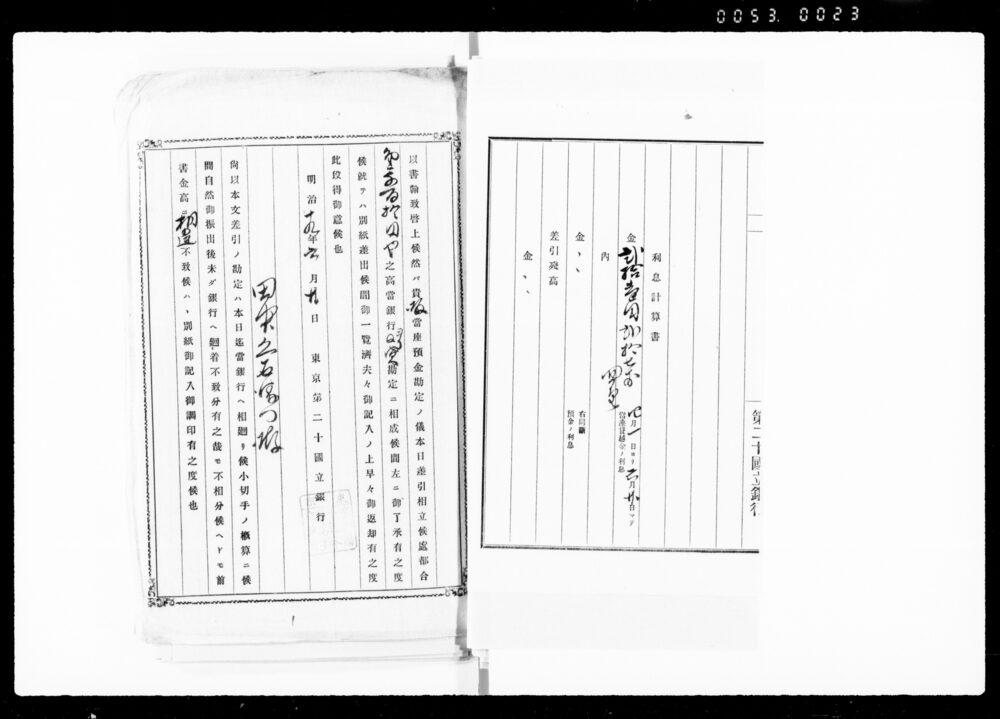 0053. 0023
利息計算書
金貳拾壹圓貳拾七錢四厘
四月一日ヨリ六月卅日マデ
當座貸越金ノ利息
右同斷
預金ノ利息
內
金、、
差引殘高
金、、
第二十國立銀行
以書翰致啓上候然バ貴殿當座預金勘定ノ儀本日差引相立候處都合
之高當銀行勘定ニ相成候間左ニ御了承有之度
候就テハ別紙差出候間御一覽濟夫々御記入ノ上早々御返却有之度
此段得御意候也
明治十九年六月卅日 東京第二十國立銀行
尙以本文差引ノ勘定ハ本日迄當銀行ヘ相廻リ候小切手ノ概算ニ候
間自然御振出後未ダ銀行ヘ廻着不致分有之哉モ不相分候ヘドモ前
書金高ニ相違不致候ハヽ別紙御記入御調印有之度候也